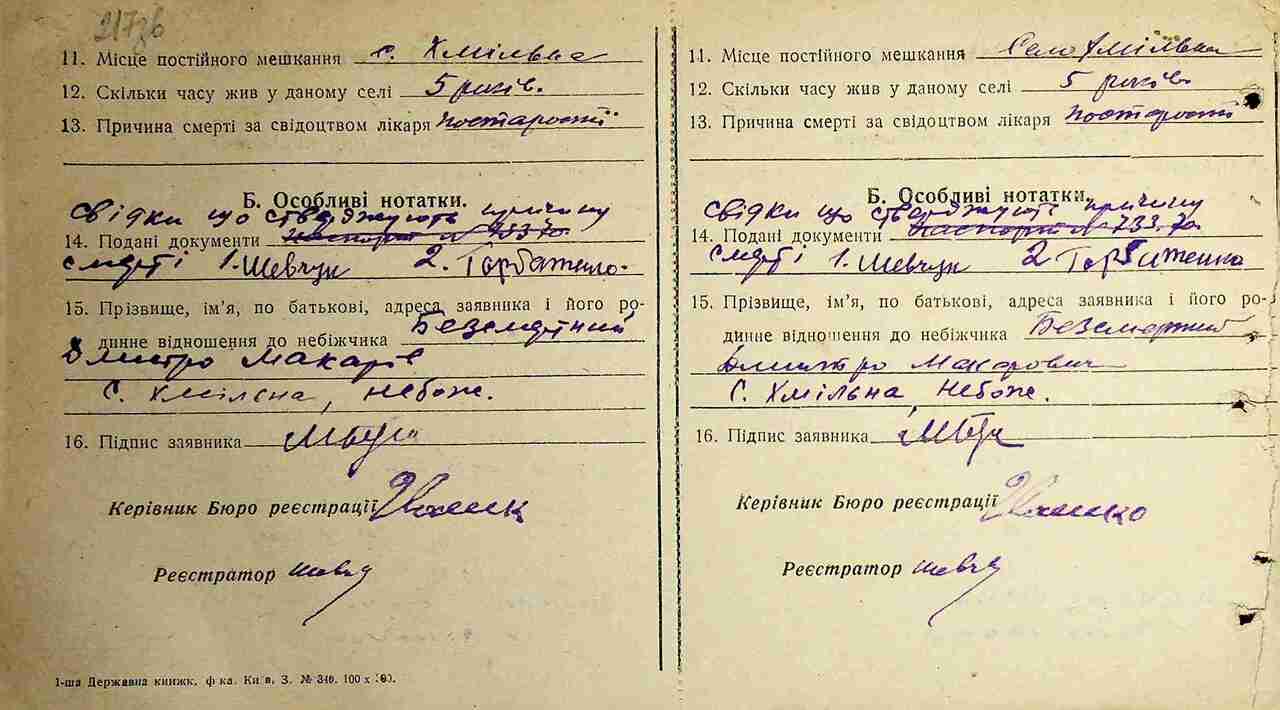 217зв
11. Місце постійного мешкання с. Хмільна
12. Скільки часу жив у даному селі 5 років.
13. Причина смерті за свідоцтвом лікаря постарости
Б. Особливі нотатки.
свідки що стверджують причину
14. Подані документи паспорт № 73370
смерті 1. Шевчук 2. Горбаженко.
15. Прізвище, ім’я, по батькові, адреса заявника і його ро-
динне відношення до небіжчика Безсмертний
Дмитро Макарів
с. Хмільна, небоже.
16. Підпис заявника
Керівник Бюро реєстрації
Реєстратор Шевч
1-ша Державна книжк. ф-ка. Київ. З. № 340. 100 х
11. Місце постійного мешкання Село Хмільна
12. Скільки часу жив у даному селі 5 років
13. Причина смерті за свідоцтвом лікаря постарости
Б. Особливі нотатки.
свідки що стверджують причину
14. Подані документи паспорт № 733.70
смерті 1. Шевчук 2 Горбаженко
15. Прізвище, ім’я, по батькові, адреса заявника і його ро-
динне відношення до небіжчика Безсмертний
Дмитро Макарович
с. Хмільна небоже.
16. Підпис заявника
Керівник Бюро реєстрації
Реєстратор Шевч